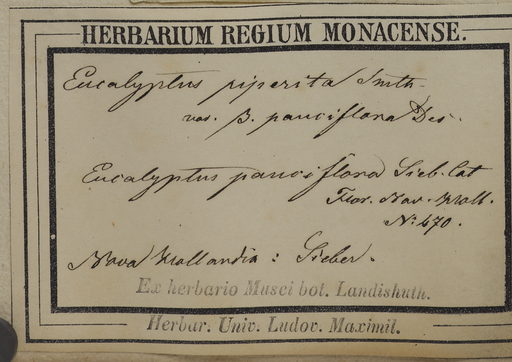 HERBARIUM REGIUM MONACENSE.
Eucalyptus piperita Smth.
var. β. pauciflora Dec.
Eucalyptus pauciflora Sieb. Cat
Flor. Nov. Holl.
No: 470.
Nova Hollandia: Sieber.
Ex herbario Musei bot. Landishuth.
Herbar. Univ. Ludov. Maximil.